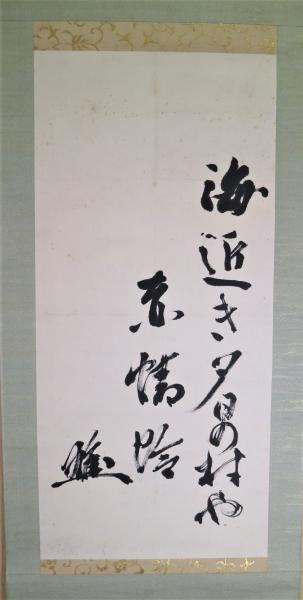 海近き夕日の村や
赤蜻蛉